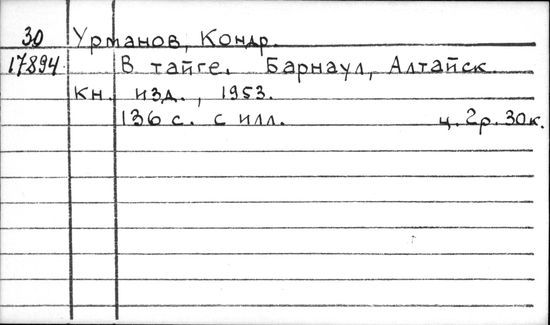 30 Урманов, Кондр.
17894 В тайге. Барнаул, Алтайск.
кн. изд., 1953.
136 с. с илл. ц. 2р. 30к.